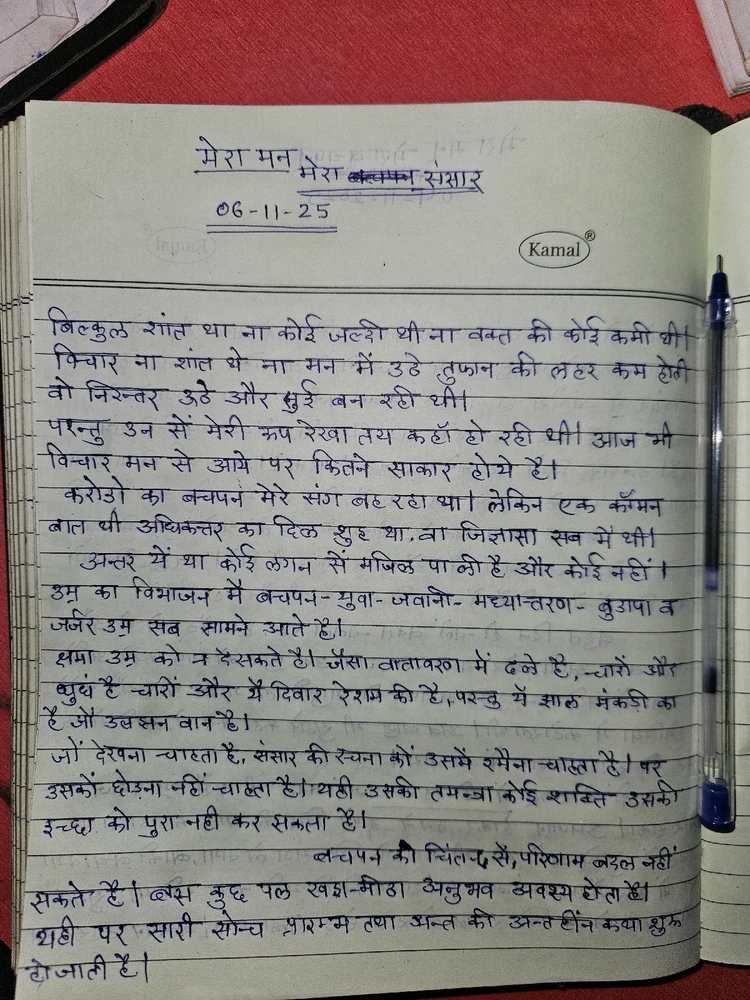 मेरा मन मेरा संसार
06-11-25
Kamal
बिल्कुल शांत था ना कोई जल्दी थी ना वक्त की कोई कमी थी।
विचार ना शांत थे ना मन में उठे तुफान की लहर कम होती
वो निरन्तर उठे और सुई बन रही थी।
परन्तु उन सें मेरी रूप रेखा तय कहाँ हो रही थी। आज भी
विचार मन से आये पर कितने साकार होये है।
करोडो का बचपन मेरे संग बह रहा था। लेकिन एक कॉमन
बात थी अधिकत्तर का दिल शुद्द था, वा जिज्ञासा सब मै थी।
अन्तर ये था कोई लगन सें मंजिल पा ली है और कोई नहीं।
उम्र का विभाजन मै बचपन- युवा- जवानी- मध्यान्तरण- बुडापा व
जर्जर उम्र सब सामने आते है।
क्षमा उम्र को न दे सकते है। जैसा वातावरण में ढले है, चारों और
धुधं है चारों और ये दिवार रेशम की है, परन्तु ये झाल मंकडी का
है जौ उलझन वान है।
जों देखना चाहता है, संसार की रचना कों उसमें रमैना चाहता है। पर
उसकों छोड़ना नहीं चाहता है। यही उसकी तमन्ना कोई शक्ति उसकी
इच्छा को पुरा नही कर सकता है।
बचपन की चिंतन सें, परिणाम बदल नहीं
सकते है। बस कुछ पल खट्टा-मीठा अनुभव अवश्य होता है।
यही पर सारी सोन्च प्रारम्भ तथा अन्त की अन्तहीन कथा शुरू
हो जाती है।